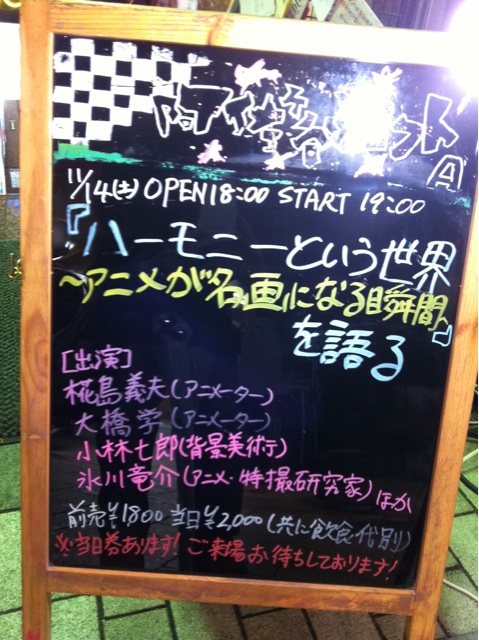 阿佐ヶ谷ロフト
A
11/14(土) OPEN18:00 START 19:00
『ハーモニーという世界
〜アニメが名画になる瞬間』
を語る
[出演]
椛島義夫(アニメーター)
大橋学(アニメーター)
小林七郎(背景美術)
氷川竜介(アニメ・特撮研究家)ほか
前売¥1800 当日¥2,000(共に飲食代別)
※当日券あります! ご来場お待ちしております!